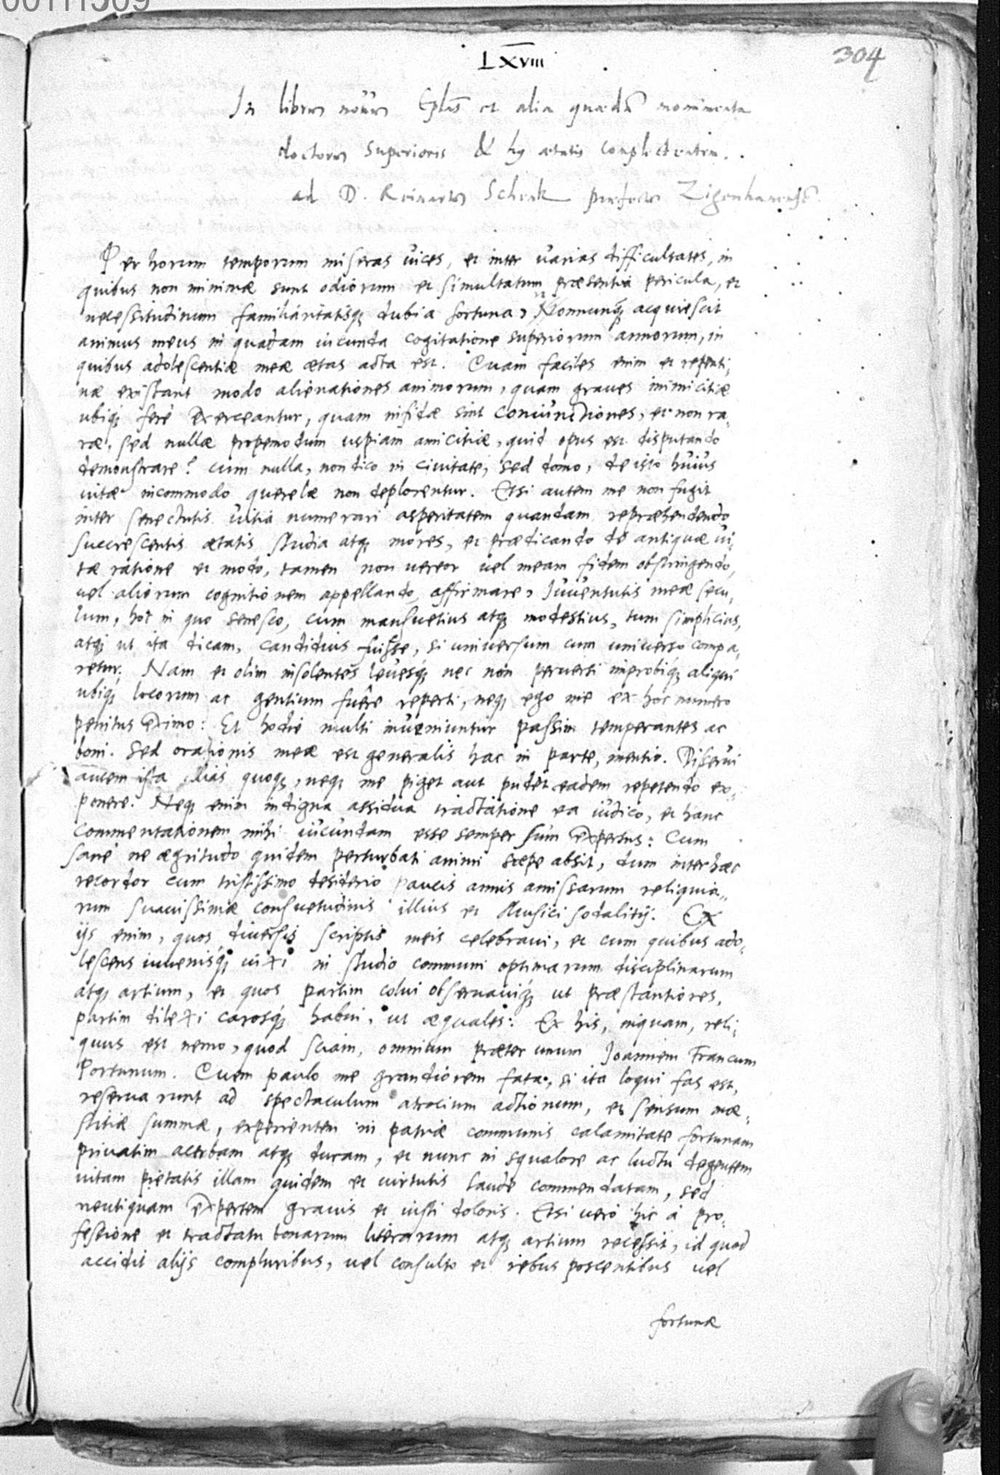 00111509
LXVIII
304
In librum novum Eplas et alia quædam monimenta
doctorum superioris & hs ætatis complectentem.
ad D. Reinartum Schenk præfectum Zigenhainensem.
Per horum temporum miseras vices, et inter varias difficultates, in
quibus non minimæ sunt odiorum et simultatum præsentia pericula, et
necessitudinum familiaritatisq; dubia fortuna, Nonnunq; acquiescit
animus meus in quadam iucunda cogitatione superiorum annorum, in
quibus adolescentiæ meæ ætas acta est. Quam faciles enim et repenti,
næ existant modo alienationes animorum, quam graves inimicitiæ
ubiq; ferè exerceantur, quam infidæ sint coniunctiones, et non ra-
ræ, sed nullæ propemodum uspiam amicitiæ, quid opus est disputando
demonstrare? cum nulla, non dico in civitate, sed domo, de isto huius
vitæ incommodo querelæ non deplorentur. Etsi autem me non fugit
inter senectutis vitia numerari asperitatem quandam reprehendendo
succrescentis ætatis studia atq; mores, et prædicando de antiquæ vi,
tæ ratione et modo, tamen non vereor vel meam fidem obstringendo,
vel aliorum cognitionem appellando, affirmare, Iuventutis meæ secu,
lum, hoc in quo senesco, cum mansuetius atq; modestius, tum simplicius,
atq; ut ita dicam, candidius fuisse, si universum cum universo compa,
retur. Nam et olim insolentes levesq; nec non perversi improbiq; aliqui
ubiq; locorum ac gentium fuêre reperti, neq; ego me ex hoc numero
penitus eximo: Et hodie multi inveniuntur passim temperantes ac
boni. Sed orationis meæ est generalis hac in parte, mentio. Disserui
autem ista alias quoq;, neq; me piget aut pudet eadem repetendo ex-
ponere. Neq; enim indigna assidua tractatione ea iudico, et hanc
commentationem mihi iucundam esse semper sum expertus: Cum
sanè ne ægritudo quidem perturbati animi sæpe absit, dum inter hæc
recordor cum tristissimo desiderio paucis annis amissarum reliquia-
rum suavissimæ consuetudinis illius et Musici sodalitij. Ex
ijs enim, quos diversis scriptis meis celebravi, et cum quibus ado-
lescens iuvenisq; vixi in studio communi optimarum disciplinarum
atq; artium, et quos partim colui observaviq; ut præstantiores,
partim dilexi carosq; habui, ut æquales: Ex his, inquam, reli,
quus est nemo, quod sciam, omnium præter unum Joannem Francum
Portunum. Quem paulo me grandiorem fata, si ita loqui fas est,
reservarunt ad spectaculum atrocium actionum, et sensum mœ-
stitiæ summæ, experientem in patriæ communis calamitate fortunam
privatim acerbam atq; duram, et nunc in squalore ac luctu degentem
vitam pietatis illam quidem et virtutis laude commendatam, sed
neutiquam expertem gravis et iusti doloris. Etsi verò hic à pro-
fessione et tractatu bonarum literarum atq; artium recessit, id quod
accidit alijs compluribus, vel consulto et rebus poscentibus vel
fortunæ